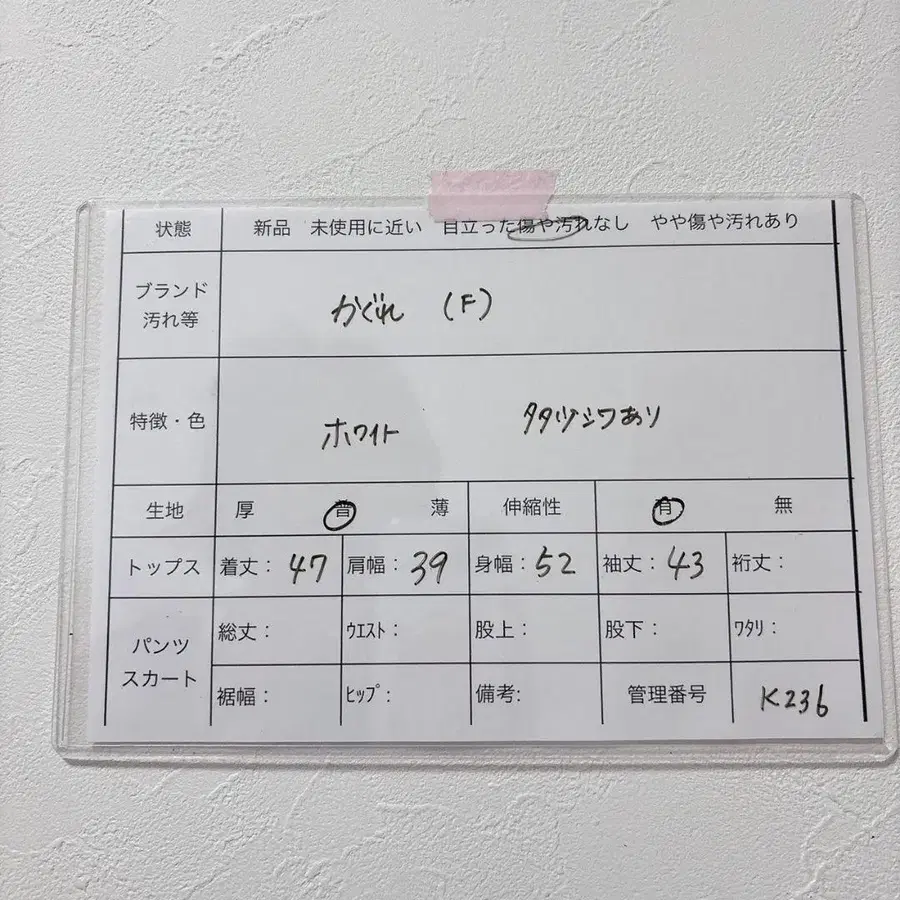 状態 新品 未使用に近い 目立った傷や汚れなし やや傷や汚れあり
ブランド
汚れ等
かぐれ (F)
特徴・色 ホワイト タタミジワあり
生地 厚 普 薄 伸縮性 有 無
トップス 着丈: 47 肩幅: 39 身幅: 52 袖丈: 43 裄丈:
パンツ
スカート
総丈: ウエスト: 股上: 股下: ワタリ:
裾幅: ヒップ: 備考: 管理番号 K236